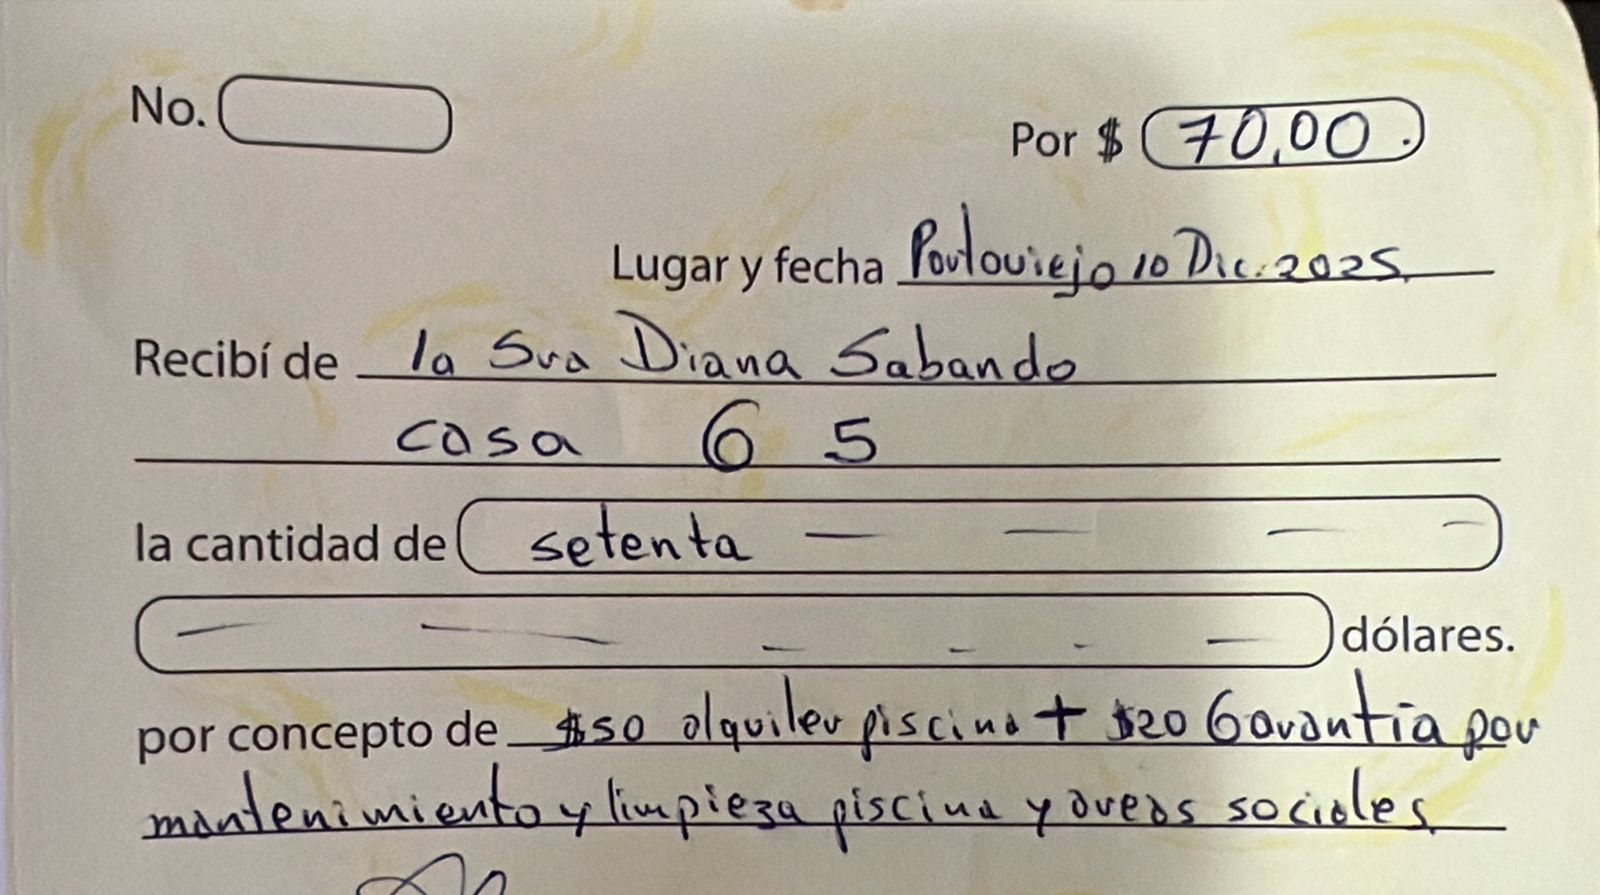 No.
Por $ 70,00.
Lugar y fecha Portoviejo 10 Dic. 2025.
Recibí de la Sra Diana Sabando
casa 65
la cantidad de setenta — — — —
— — - - - — dólares.
por concepto de $50 alquiler piscina + $20 Garantía por
mantenimiento y limpieza piscina y areas sociales.